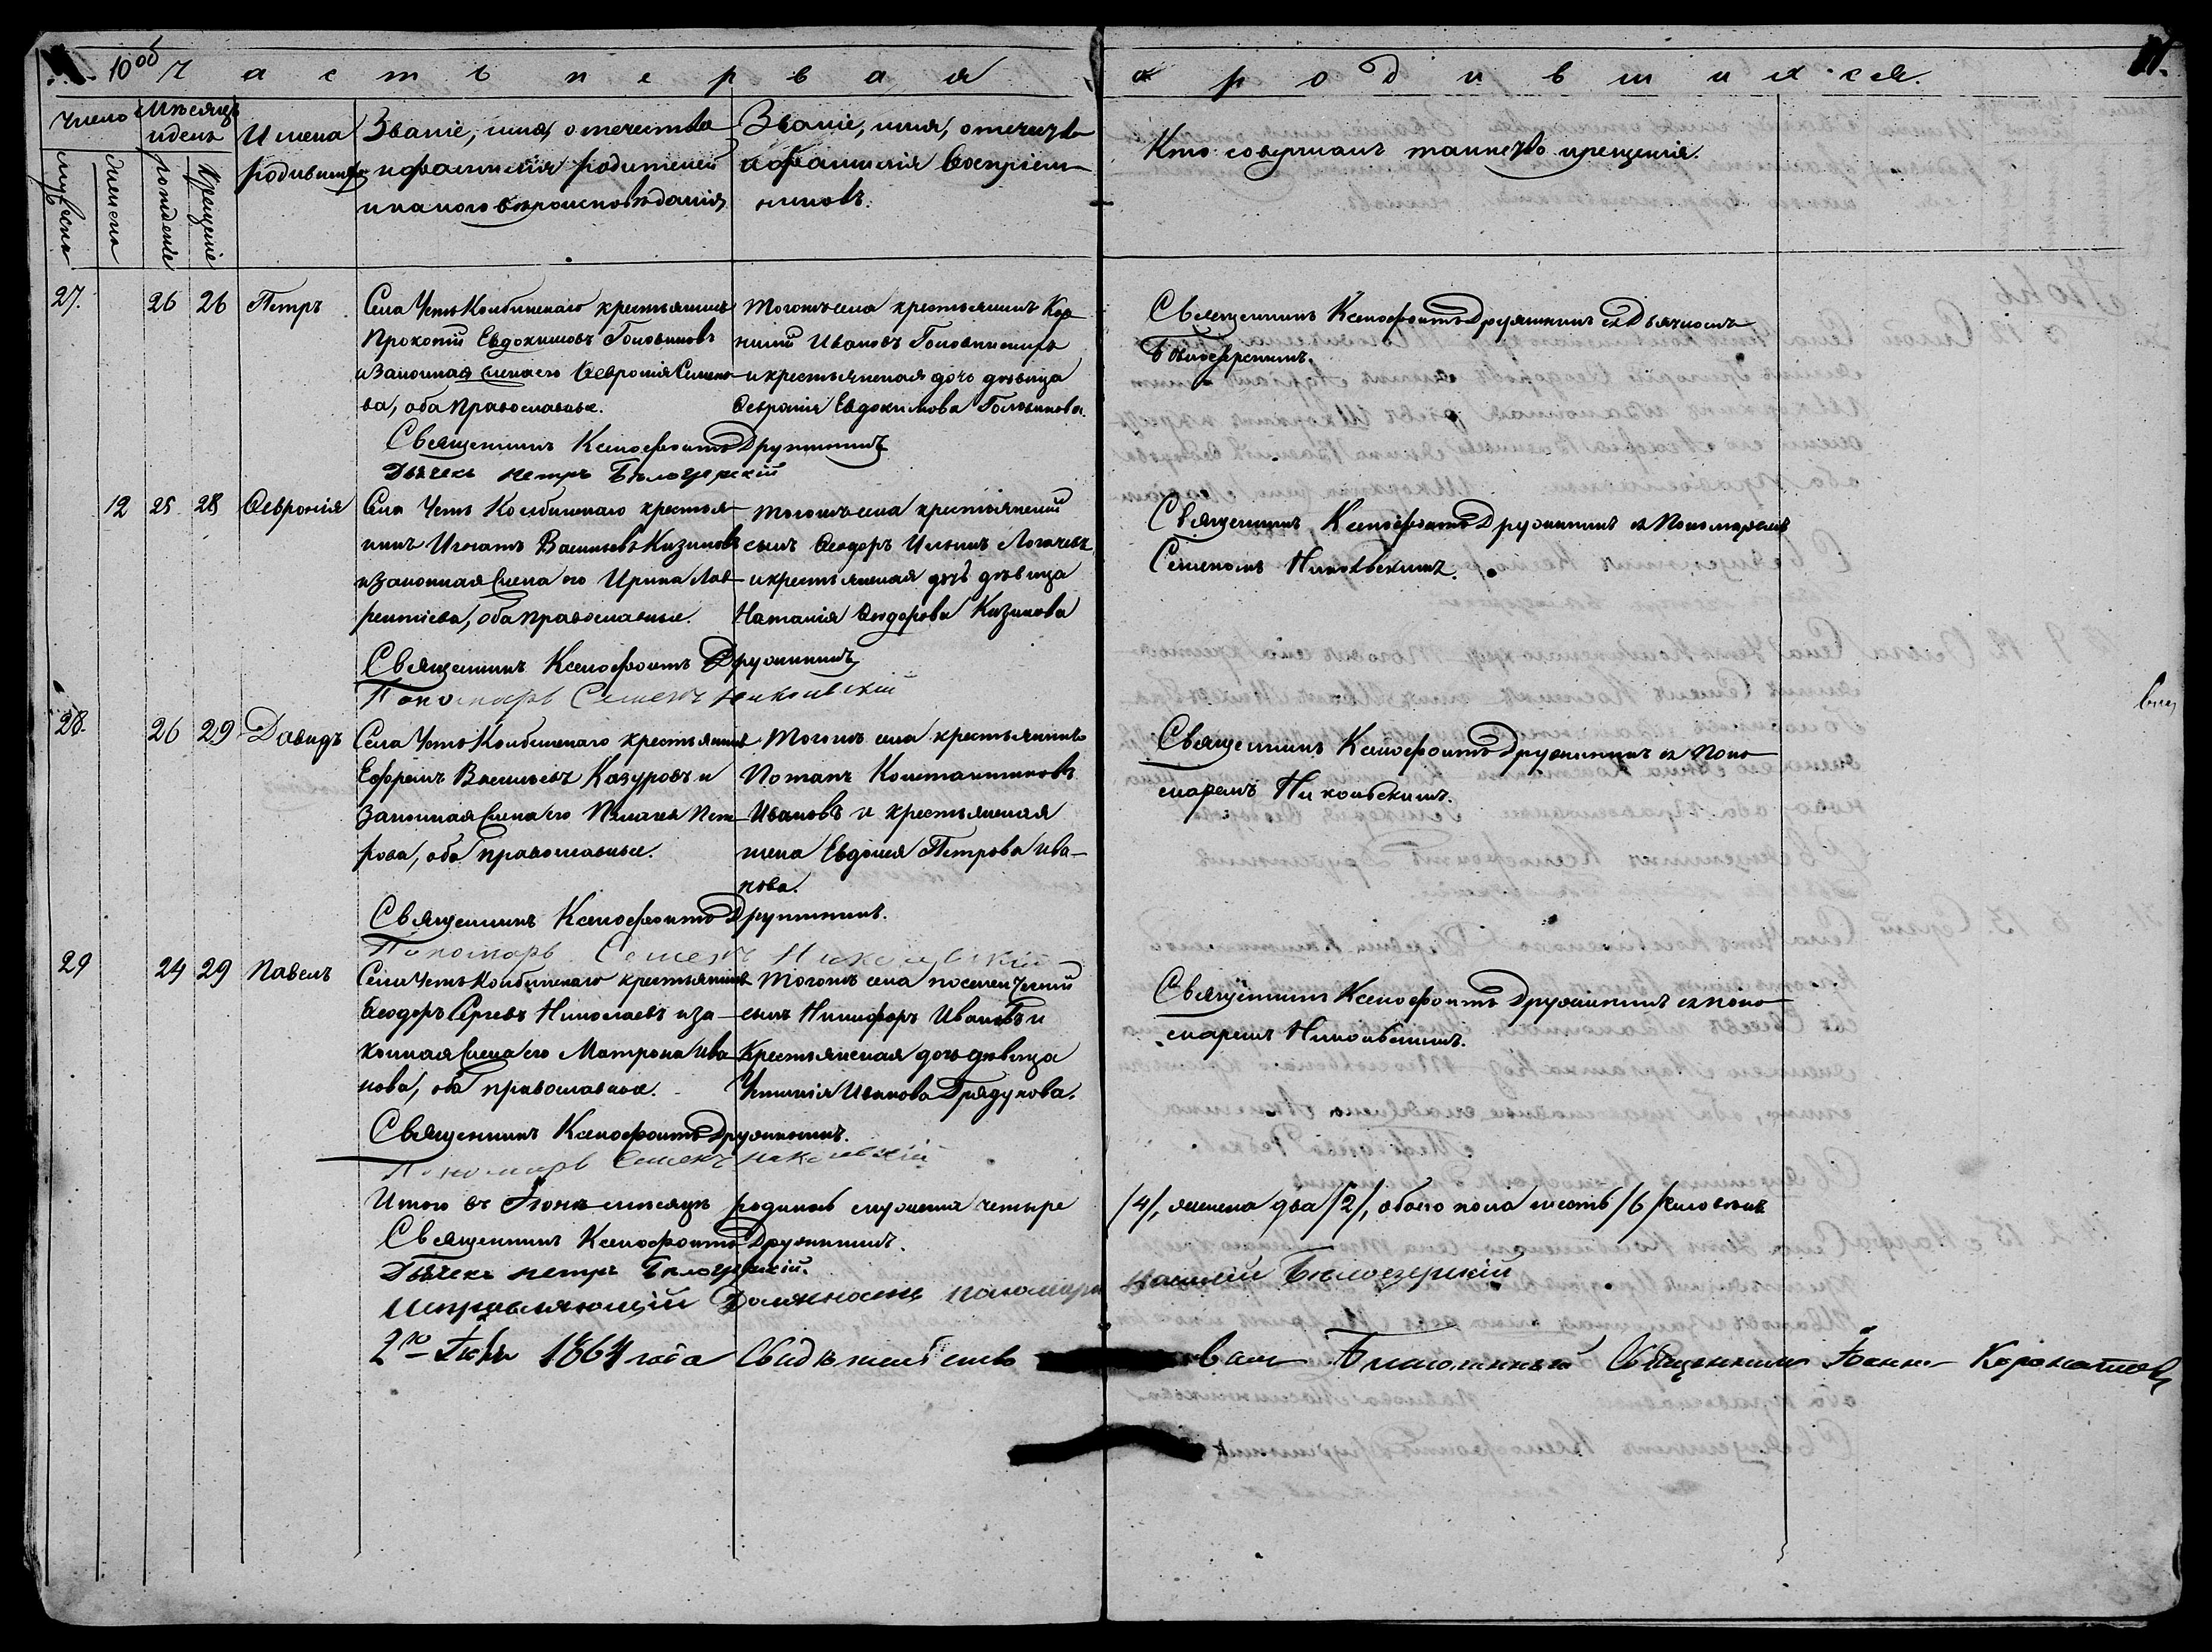 10 об
Часть первая
о родившихся.
11.
Число
Мѣсяцъ и день
Имена родившихся
Званіе, имя, отечество и фамилія родителей и какого вѣроисповѣданія
Званіе, имя, отечество и фамилія воспріемниковъ.
Кто совершалъ таинство крещенія.
мужеска
женска
рожденіе
крещеніе
27. 26 26 Петръ
Села Усть Колбинскаго крестьянинъ
Прокопій Евдокимовъ Головиновъ
и Законная жена его Ѳевронія Семено-
ва, оба Православные.
Тогожъ села крестьянинъ Кор-
нилій Ивановъ
и крестьянская дочь дѣвица
Ѳевронія Евдокимова Головинова.
Священникъ Ксенофонтъ Дружининъ съ Дьячкомъ
Бѣлозерскимъ.
Священникъ Ксенофонтъ Дружининъ
Дьячекъ петръ Бѣлозерскій
12 25 28 Ѳевронія
Села Усть Колбинскаго крестья-
нинъ Игнатъ Васильевъ Казаковъ
и Законная жена его Ирина Лав-
рентіева, оба Православные.
Тогожъ села крестьянскій
сынъ Ѳеодоръ Ильинъ Логачевъ
и крестьянская дочь дѣвица
Наталія Ѳеодорова Казакова
Священникъ Ксенофонтъ Дружининъ съ Пономаремъ
Семеномъ Никольскимъ.
Священникъ Ксенофонтъ Дружининъ
Пономарь Семенъ Никольскій
28. 26 29 Давидъ
Села Усть Колбинскаго крестьянинъ
Ефремъ Васильевъ Казуровъ и
Законная жена его Пелагея Пет-
рова, оба православные.
Тогожъ села крестьянинъ
Потапъ Константиновъ
Ивановъ и крестьянская
жена Евдокея Петрова Ива-
нова.
Священникъ Ксенофонтъ Дружининъ съ Поно-
маремъ Никольскимъ.
Священникъ Ксенофонтъ Дружининъ.
Пономарь Семенъ Никольскій
29 24 29 Павелъ
Села Усть Колбинскаго крестьянинъ
Ѳеодоръ Сергевъ Николаевъ и за-
конная жена его Матрона Ива-
нова, оба православные.
Тогожъ села поселенческій
сынъ Никифоръ Ивановъ и
Крестьянская дочь дѣвица
Устинія Иванова Грядунова.
Священникъ Ксенофонтъ Дружининъ съ поно-
маремъ Никольскимъ.
Священникъ Ксенофонтъ Дружининъ.
Пономарь Семенъ Никольскій
Итого въ Іюнѣ мѣсяцѣ родилось мужеска четыре /4/, женска два /2/, обоего пола шесть /6/ человѣкъ
Священникъ Ксенофонтъ Дружининъ.
Дьячекъ петръ Бѣлозерскій.
Исправляющій Должность пономаря Василій Бѣлозерскій
2го 1864 года Свидѣтельство валъ Благочинный Священникъ Іоаннъ Коронатовъ